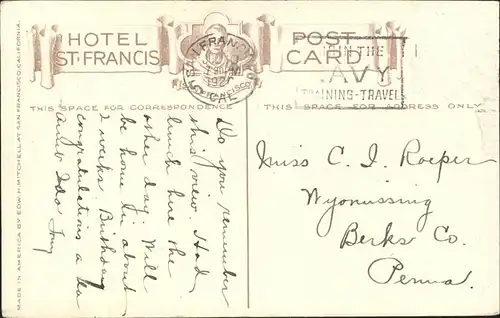 HOTEL
ST. FRANCIS
POST
CARD
JOIN THE
NAVY
TRAINING-TRAVEL
THIS SPACE FOR CORRESPONDENCE
THIS SPACE FOR ADDRESS ONLY
MADE IN AMERICA BY EDW. H. MITCHELL AT SAN FRANCISCO, CALIFORNIA.
Do you remember
this view. Had
lunch here the
other day. Will
be home in about
2 weeks. Birthday
congratulations a la
Aunt Ida
Miss C. I. Roeper
Wyomissing
Berks Co.
Penna.